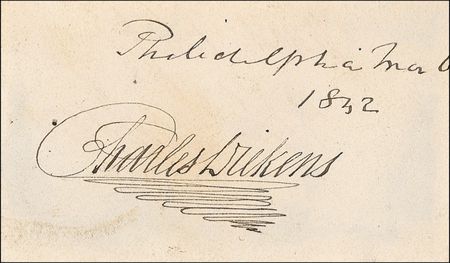 Philadelphia Mar
1842
Charles Dickens